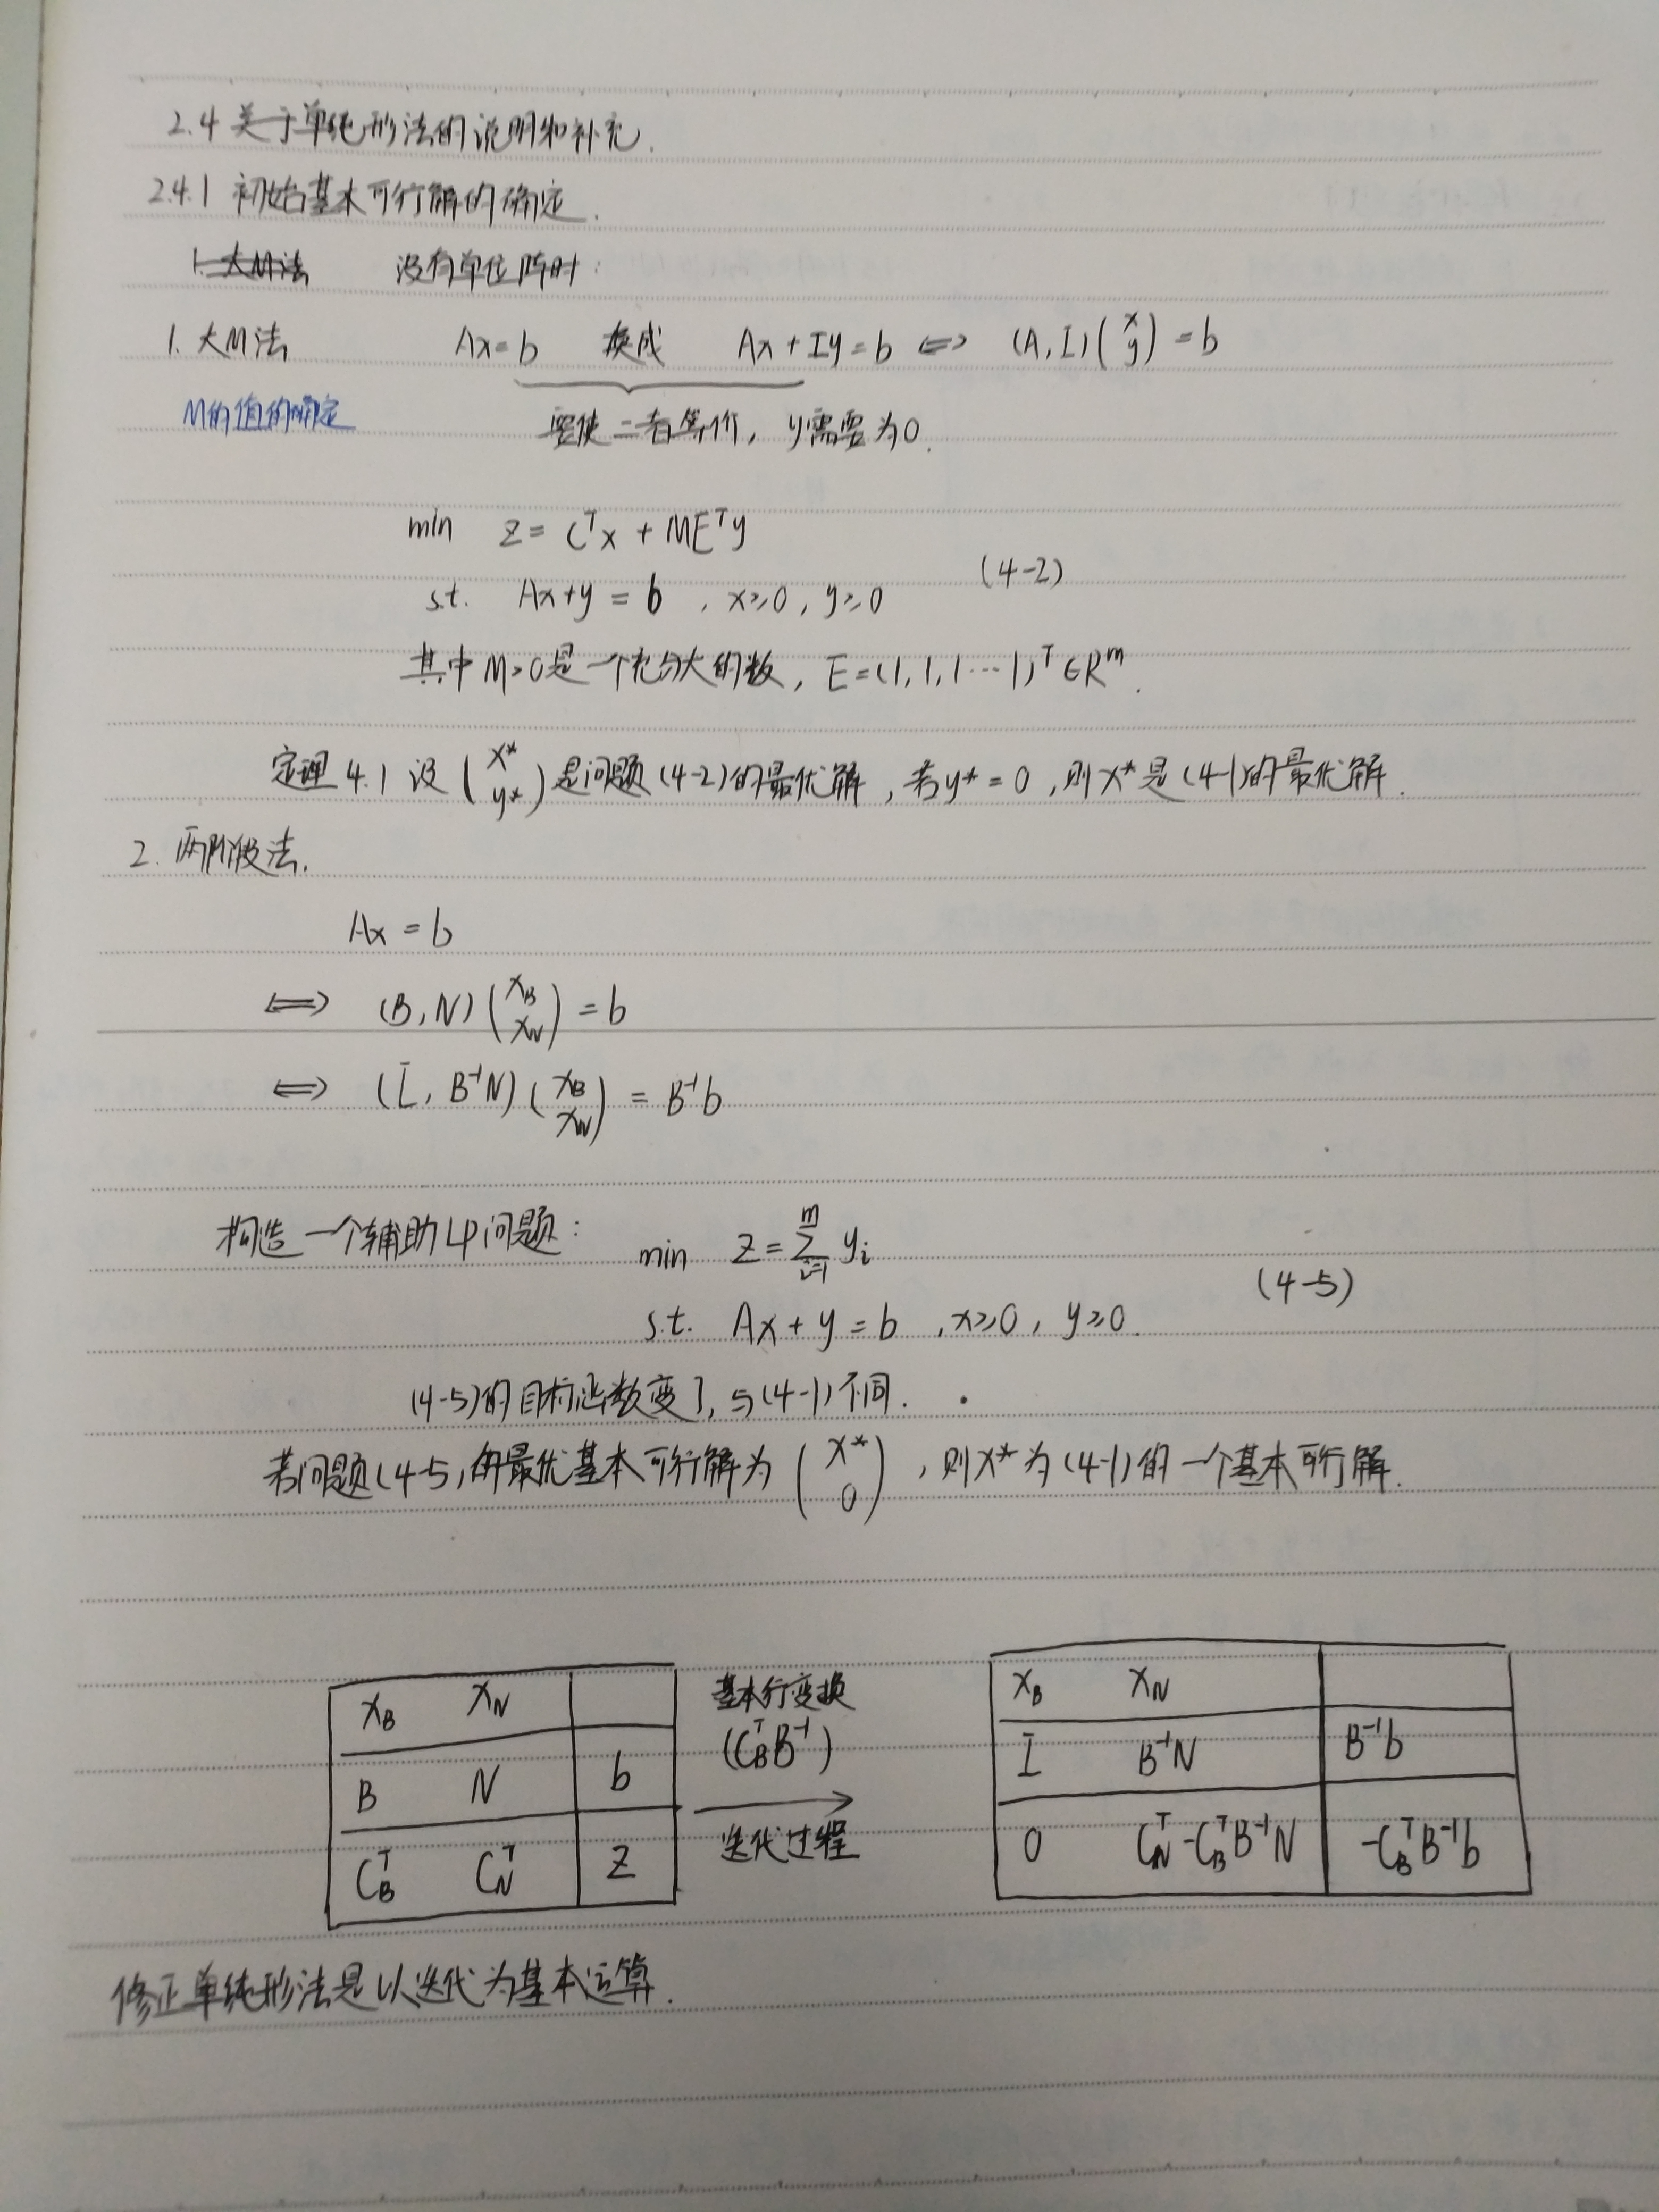 2.4 关于单纯形法的说明和补充.
2.4.1 初始基本可行解的确定.
1. 大M法 没有单位阵时:
1. 大M法 Ax=b 换成 Ax+Iy=b ⟺ (A,I)(x y)=b
M的值的确定 要使二者等价, y需要为0.
min z = Cᵀx + MEᵀy
(4-2)
s.t. Ax+y = b , x≥0, y≥0
其中M>0是一个充分大的数, E=(1,1,1⋯1)ᵀ∈Rᵐ.
定理 4.1 设 (x* y*) 是问题(4-2)的最优解, 若y*=0, 则x*是(4-1)的最优解.
2. 两阶段法.
Ax = b
⟺ (B,N)(x_B x_N) = b
⟺ (I, B⁻¹N)(x_B x_N) = B⁻¹b
构造一个辅助LP问题: min z = ∑ᵢ₌₁ᵐ yᵢ
(4-5)
s.t. Ax + y = b , x≥0, y≥0.
(4-5)的目标函数变了, 与(4-1)不同.
若问题(4-5)的最优基本可行解为 (x* 0) , 则x*为(4-1)的一个基本可行解.
x_B x_N
B N b
C_Bᵀ C_Nᵀ z
基本行变换
(C_BᵀB⁻¹)
→
迭代过程
x_B x_N
I B⁻¹N B⁻¹b
0 C_Nᵀ-C_BᵀB⁻¹N -C_BᵀB⁻¹b
修正单纯形法是以迭代为基本运算.